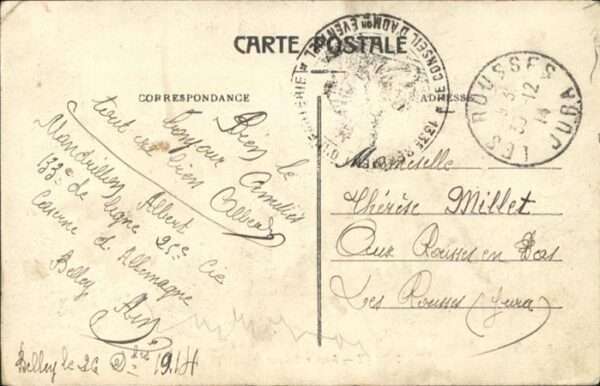 CARTE POSTALE
CORRESPONDANCE
ADRESSE
CONSEIL D'ADMON EVENTUEL
133E
LES ROUSSES JURA
30-12
14
Bien le
bonjour Camelier
tout va bien Albert
Mandrillon Albert
133e de ligne 25e Cie
Caserne d'Allemagne
Belley
Ain
Belley le 26 Dbre 1914
Mademoiselle
Thérèse Millet
Aux Rousses en Bas
Les Rousses (Jura)